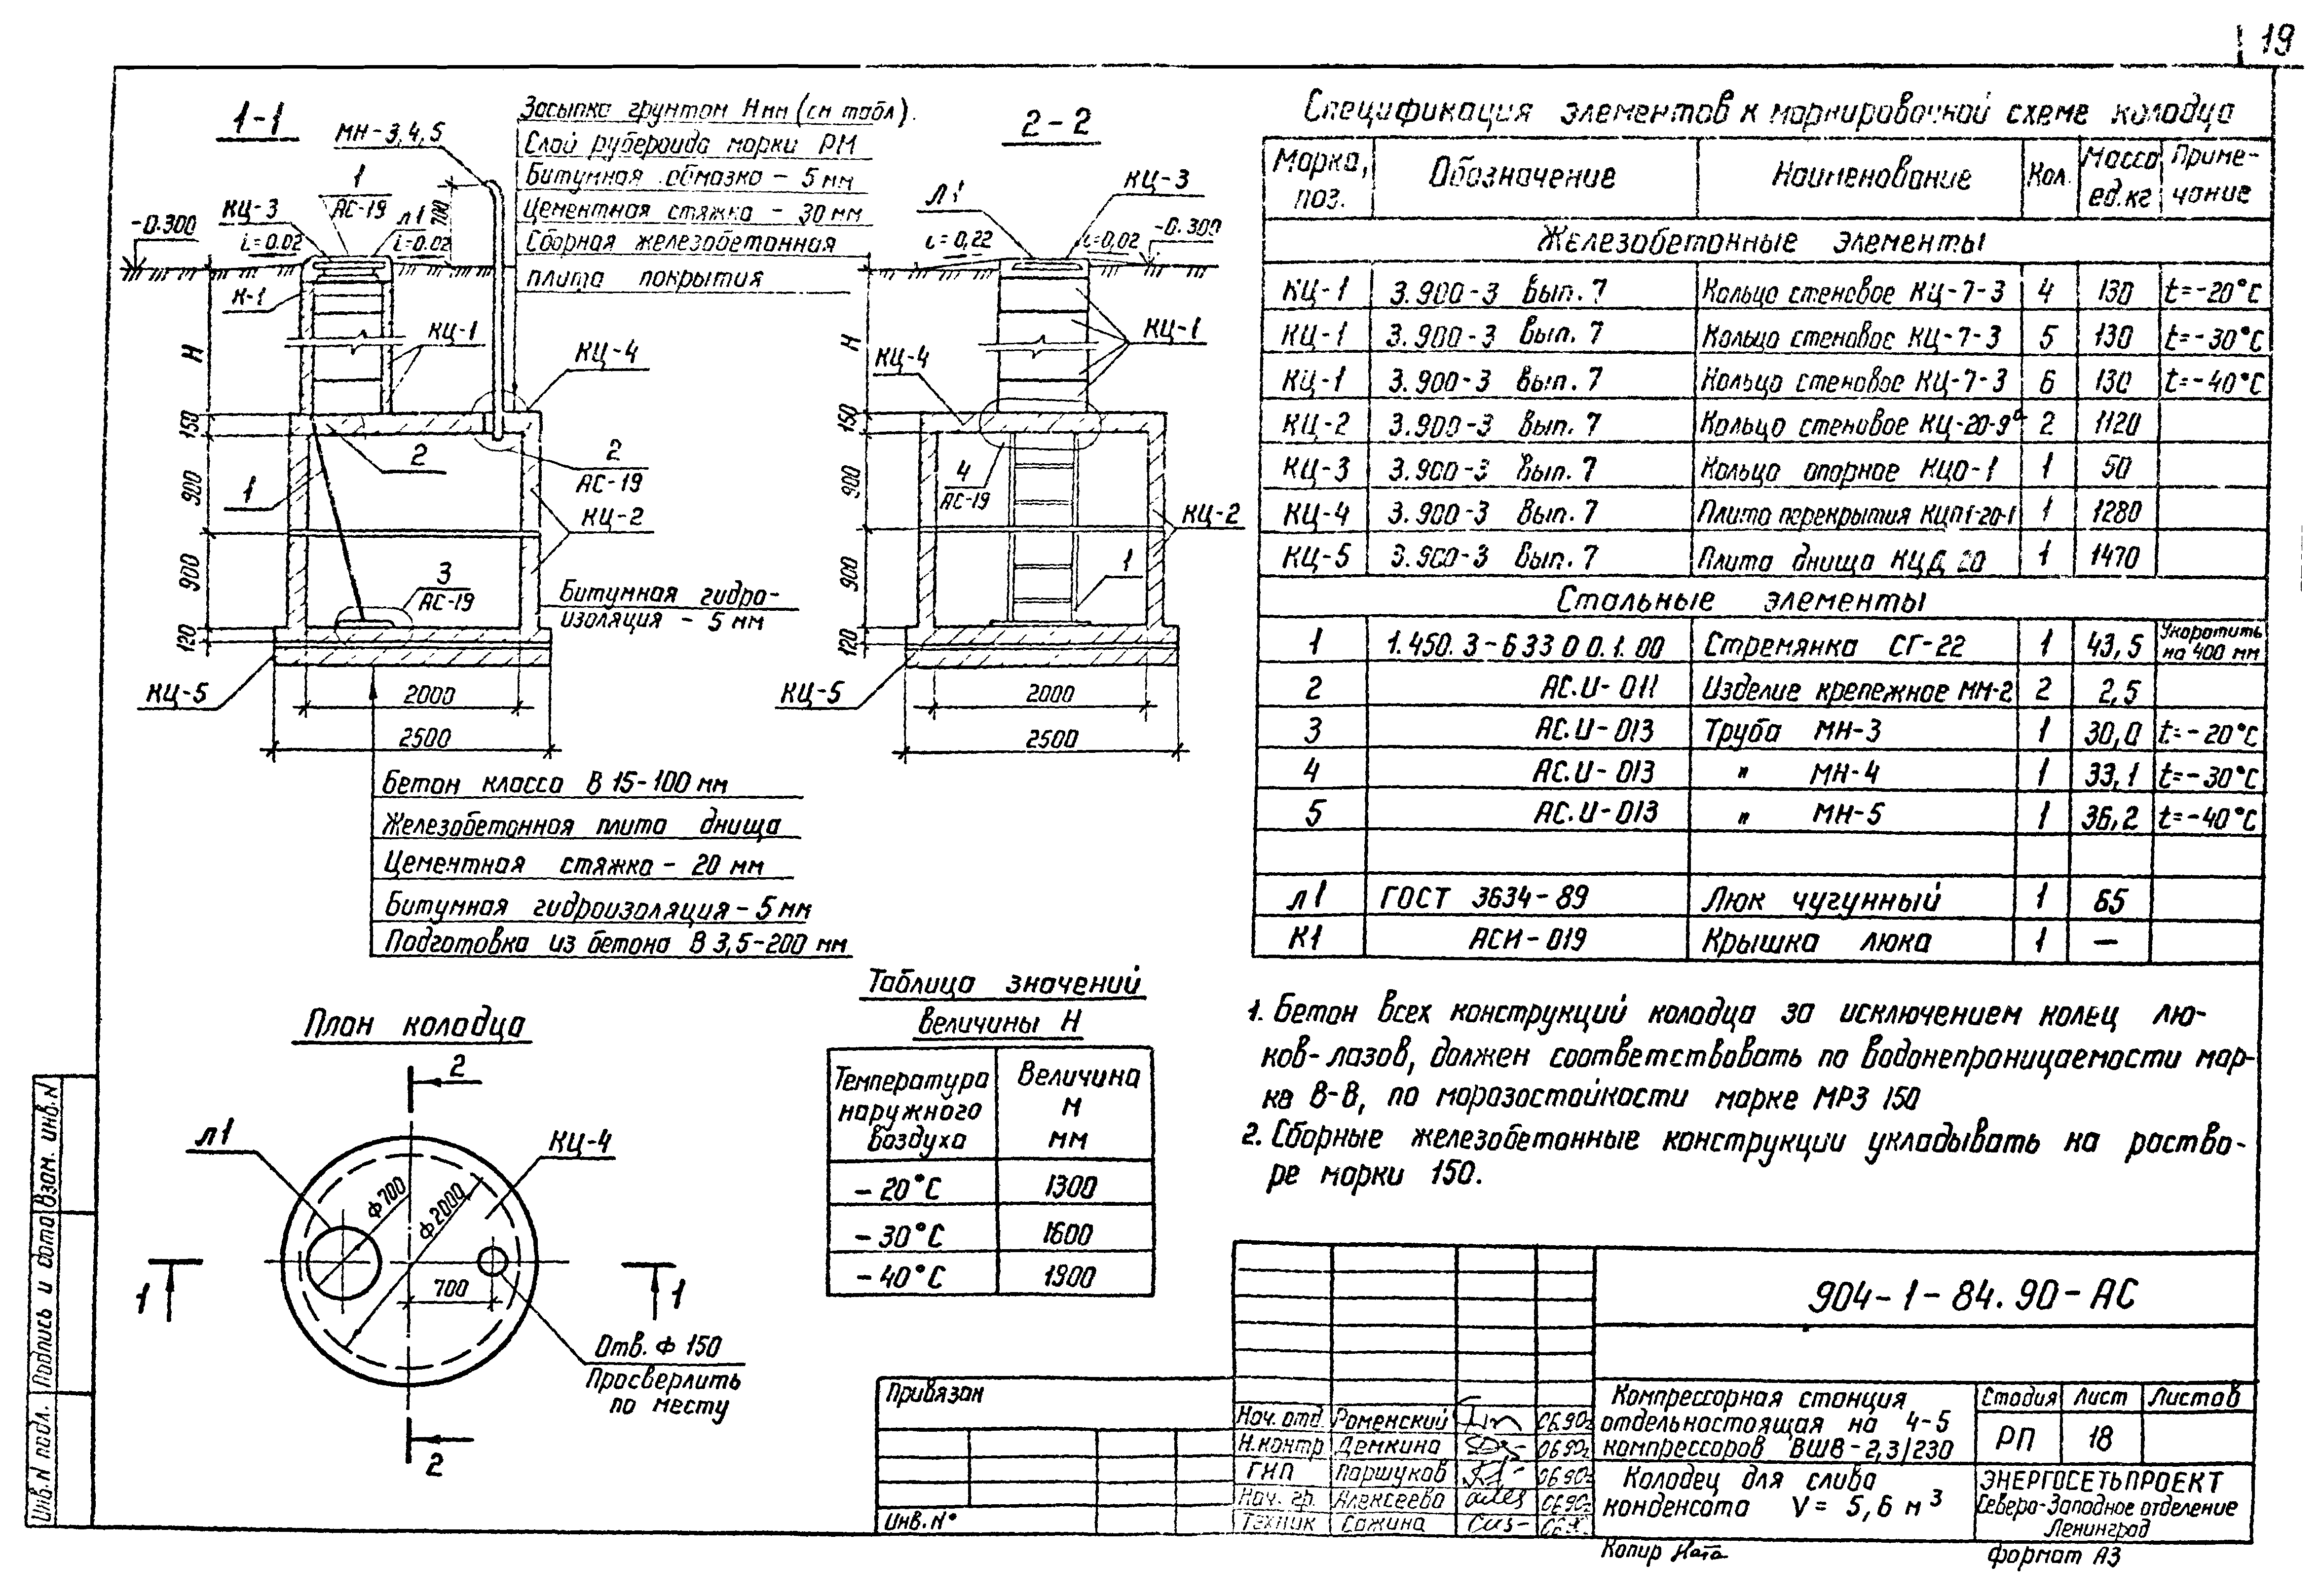 19
1-1
МН-3,4,5
1
АС-19
КЦ-3
Л1
700
-0.300
i=0.02
i=0.02
К-1
КЦ-1
Н
150
900
900
120
2
1
3
АС-19
2
АС-19
КЦ-4
КЦ-2
КЦ-5
2000
2500
Засыпка грунтом Н мм (см табл).
Слой рубероида марки РМ
Битумная обмазка - 5 мм
Цементная стяжка - 30 мм
Сборная железобетонная
плита покрытия
Битумная гидро-
изоляция - 5 мм
Бетон класса В 15-100 мм
Железобетонная плита днища
Цементная стяжка - 20 мм
Битумная гидроизоляция - 5 мм
Подготовка из бетона В 3,5-200 мм
2-2
Л1
КЦ-3
i=0,22
i=0,02
-0.300
Н
КЦ-4
КЦ-1
150
900
900
120
4
АС-19
КЦ-2
1
КЦ-5
2000
2500
План колодца
2
Л1
КЦ-4
ф700
ф2000
700
1
1
Отв. ф 150
Просверлить
по месту
2
Таблица значений
величины Н
Температура наружного воздуха Величина М мм
-20°С 1300
-30°С 1600
-40°С 1900
Спецификация элементов к маркировочной схеме колодца
Марка, поз. Обозначение Наименование Кол. Масса ед.кг Приме-чание
Железобетонные элементы
КЦ-1 3.900-3 Вып. 7 Кольцо стеновое КЦ-7-3 4 130 t=-20°С
КЦ-1 3.900-3 Вып. 7 Кольцо стеновое КЦ-7-3 5 130 t=-30°С
КЦ-1 3.900-3 Вып. 7 Кольцо стеновое КЦ-7-3 6 130 t=-40°С
КЦ-2 3.900-3 Вып. 7 Кольцо стеновое КЦ-20-9а 2 1120
КЦ-3 3.900-3 Вып. 7 Кольцо опорное КЦО-1 1 50
КЦ-4 3.900-3 Вып. 7 Плита перекрытия КЦП1-20-1 1 1280
КЦ-5 3.900-3 Вып. 7 Плита днища КЦД 20 1 1470
Стальные элементы
1 1.450.3-6 33 0 0.1.00 Стремянка СГ-22 1 43,5 Укоротить на 400 мм
2 АС.И-011 Изделие крепежное МН-2 2 2,5
3 АС.И-013 Труба МН-3 1 30,0 t=-20°С
4 АС.И-013 " МН-4 1 33,1 t=-30°С
5 АС.И-013 " МН-5 1 36,2 t=-40°С
Л1 ГОСТ 3634-89 Люк чугунный 1 65
К1 АСИ-019 Крышка люка 1 —
1. Бетон всех конструкций колодца за исключением колец лю-
ков-лазов, должен соответствовать по водонепроницаемости мар-
ка В-8, по морозостойкости марке МРЗ 150
2. Сборные железобетонные конструкции укладывать на раство-
ре марки 150.
904-1-84.90-АС
Привязан
Инв.N°
Нач. отд. Роменский 06.90г
Н.контр Демкина 06.90г
ГИП Паршуков 06.90г
Нач. гр. Алексеева 06.90г
Техник Сажина
Компрессорная станция
отдельностоящая на 4-5
компрессоров ВШВ-2,3/230
Стадия Лист Листов
РП 18
Колодец для слива
конденсата V= 5,6 м3
ЭНЕРГОСЕТЬПРОЕКТ
Северо-Западное отделение
Ленинград
Копир Ната
формат А3
Инв.N подл.
Подпись и дата
Взам. инв.N